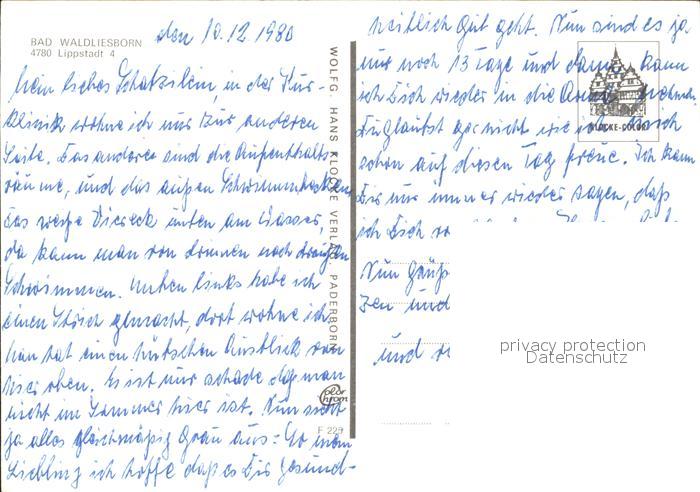 BAD WALDLIESBORN
4780 Lippstadt 4
den 10.12.1980
Mein liebes Schatzilein, in der Kur-
klinik wohne ich nur zur anderen
Seite. Das andere sind die Aufenthalts-
räume, und das außen Schwimmbecken,
das weiße Viereck unten am Wasser,
da kann man von drinnen nach draußen
Schwimmen. links habe ich
einen Strich gemacht, dort wohne ich
man hat einen hübschen Ausblick von
hier oben. Es ist nur schade daß man
nicht im Sommer hier ist. Nun sieht
ja alles gleichmäßig Grau aus. So mein
Liebling ich hoffe daß es Dir Gesund-
heitlich gut geht. Nun sind es ja
nur noch 13 Tage und dann kann
ich Dich wieder in die Arme nehmen
Du glaubst gar nicht wie ich mich
schon auf diesen Tag freue. Ich kann
Dir nur immer wieder sagen, daß
ich Dich
Nun Grüß
zen und
und
WOLFG. HANS KLOCKE VERLAG, PADERBORN
Color
Chrom
F 229
KLOCKE-COLOR
privacy protection
Datenschutz